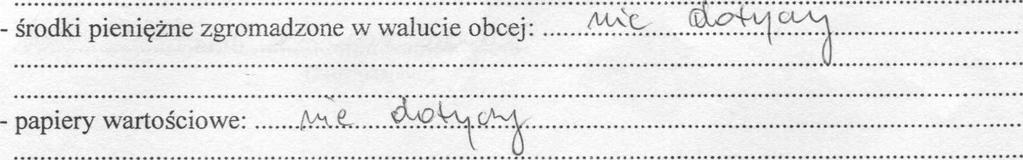 - środki pieniężne zgromadzone w walucie obcej: nie dotyczy
- papiery wartościowe: nie dotyczy